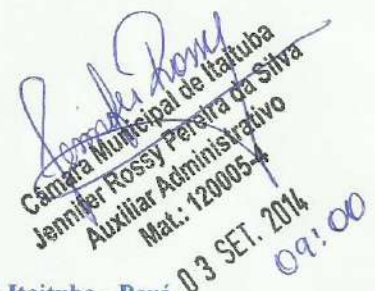 Jennifer Rossy
Câmara Municipal de Itaituba
Jennifer Rossy Pereira da Silva
Auxiliar Administrativo
Mat.: 120005-4
03 SET. 2014
09:00
Itaituba - Pará